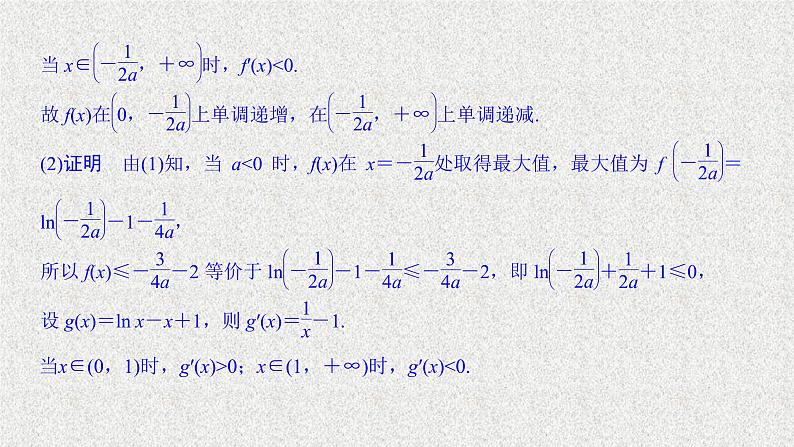 当 x∈(-1/2a，+∞)时，f′(x)<0.
故 f(x)在(0，-1/2a)上单调递增，在(-1/2a，+∞)上单调递减.
(2)证明　由(1)知，当 a<0 时，f(x)在 x=-1/2a处取得最大值，最大值为 f (-1/2a)=
ln(-1/2a)-1-1/4a，
所以 f(x)≤-3/4a-2 等价于 ln(-1/2a)-1-1/4a≤-3/4a-2，即 ln(-1/2a)+1/2a+1≤0，
设 g(x)=ln x-x+1，则 g′(x)=1/x-1.
当x∈(0，1)时，g′(x)>0；x∈(1，+∞)时，g′(x)<0.